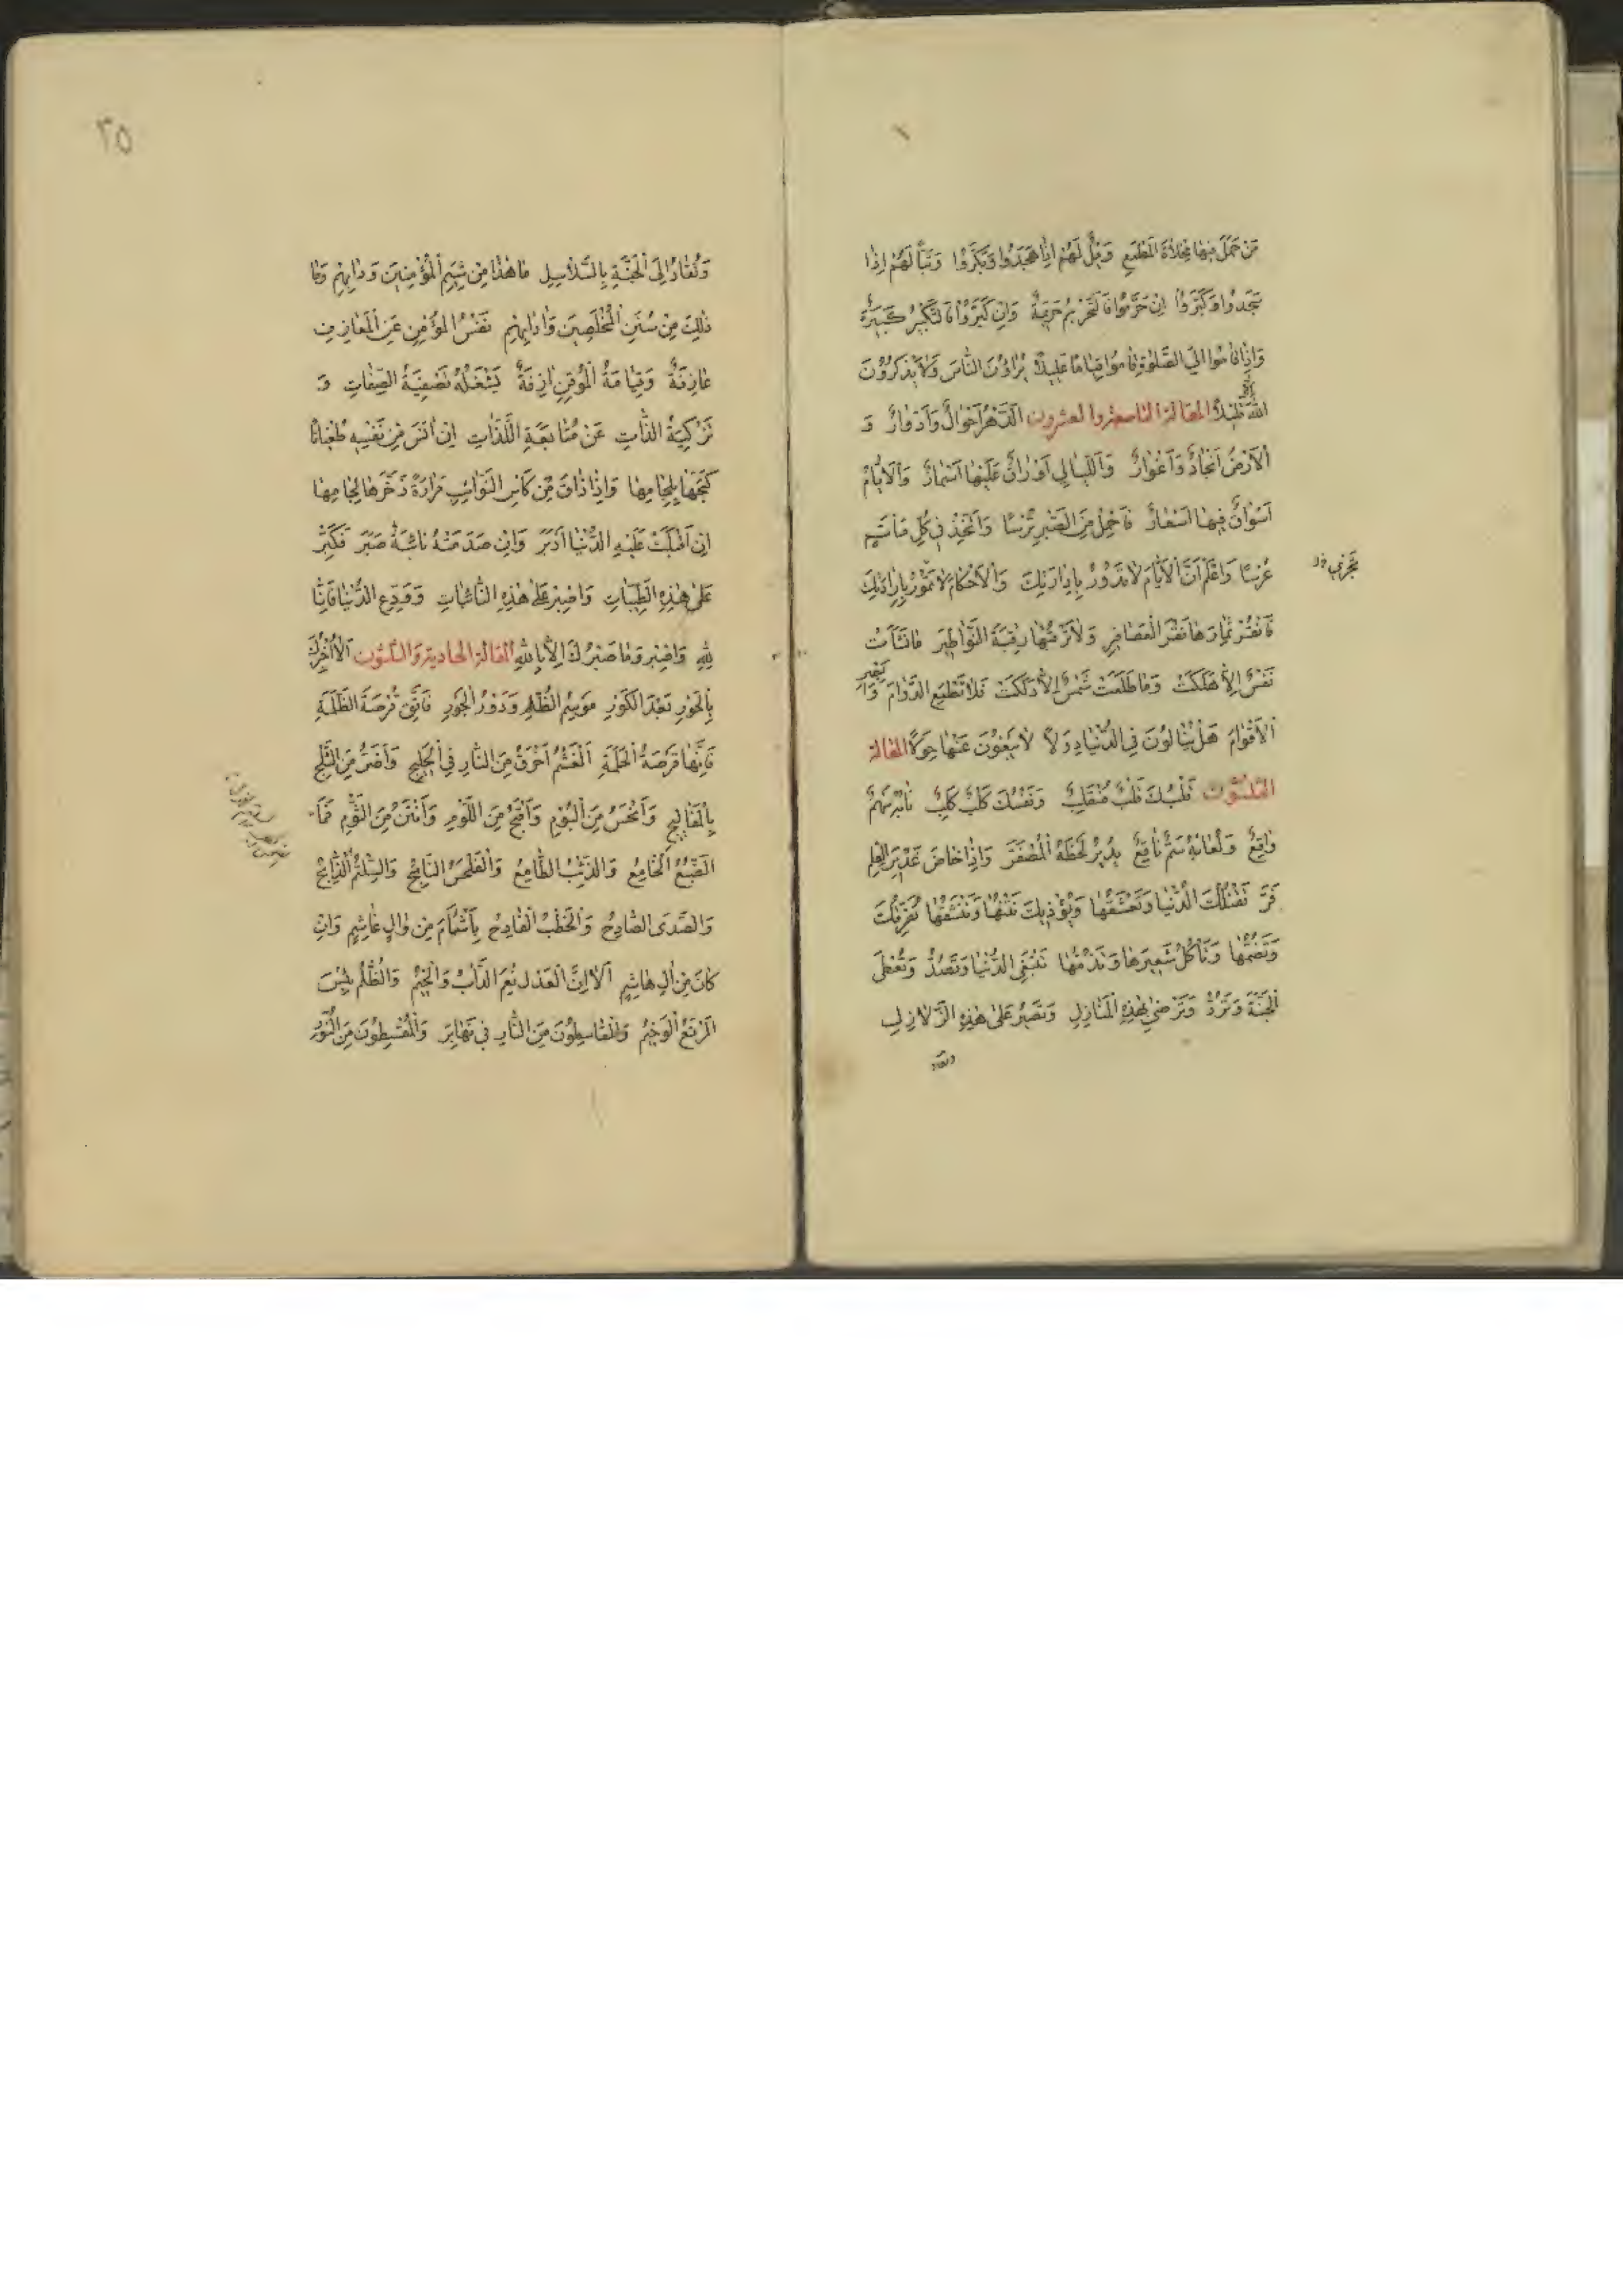 مَنْ حَمَلَ فِيهَا مِخْلَاةَ الْمَطْمَعِ وَيْلٌ لَهُمْ إِذَا هَجَدُوا وَبَكَرُوا وَتَبًّا لَهُمْ إِذَا
سَجَدُوا وَكَبَّرُوا إِنْ حَرَّمُوا فَالتَّحْرِيمُ جَرِيمَةٌ وَإِنْ كَبَّرُوا فَالتَّكْبِيرُ كَبِيرَةٌ
وَإِذَا قَامُوا إِلَى الصَّلٰوةِ قَامُوا قِيَامًا عَلِيلًا يُرَاؤُنَ النَّاسَ وَلَا يَذْكُرُونَ
اللهَ إِلَّا قَلِيلًا المقالة التاسعة والعشرون الدَّهْرُ أَحْوَالٌ وَأَدْوَارٌ وَ
الْأَرْضُ أَنْجَادٌ وَأَغْوَارٌ وَاللَّيَالِي أَوْرَاقٌ عَلَيْهَا أَسْمَارٌ وَالْأَيَّامُ
أَسْوَاقٌ فِيهَا أَسْعَارٌ فَاحْمِلْ مِنَ الصَّبْرِ تُرْسًا وَاتَّخِذْ فِي كُلِّ مَأْتَمٍ
عُرْسًا وَاعْلَمْ أَنَّ الْأَيَّامَ لَا تَدُورُ بِإِدَارَتِكَ وَالْأَحْكَامَ لَا تَمُورُ بِإِرَادَتِكَ
تجري
فَانْقُرْ ثِمَارَهَا نَقْرَ الْعَصَافِيرِ وَلَا تَرْقُبْهَا رِقْبَةَ النَّوَاطِيرِ مَا نَشَأَتْ
نَفْسٌ إِلَّا هَلَكَتْ وَمَا طَلَعَتْ شَمْسٌ إِلَّا دَلَكَتْ فَلَا تَطْمَعِ الدَّوَامَ
الْأَقْوَامَ هَلْ يَنَالُونَ فِي الدُّنْيَا دِوَلًا لَا يَبْغُونَ عَنْهَا حِوَلًا المقالة
الثلثون قَلْبُكَ قَلْبٌ مُنْقَلِبٌ وَنَفْسُكَ كَلْبٌ كَلِبٌ سَهْمٌ
وَاقِعٌ وَلُعَابُهُ سَمٌّ نَاقِعٌ يُدِيرُ لَحْظَهُ الْمُصْفَرَّ وَإِذَا خَاضَ غَدِيرَ الْعِلْمِ
فَرَّ تَقْتُلُكَ الدُّنْيَا وَتَعْشَقُهَا وَيُؤْذِيكَ نَتْنُهَا وَتَنْشَقُهَا تُعَزِّقُكَ
وَتَضُمُّهَا وَتَأْكُلُ شَعِيرَهَا وَتَذُمُّهَا تَبْتَغِي الدُّنْيَا وَتُصَدُّ وَتُعْطَى
الْجَنَّةَ وَتَرُدُّ وَتَرْضَى بِهَذِهِ الْمَنَازِلِ وَتَصْبِرُ عَلَى هٰذِهِ الزَّلَازِلِ
وتقاد
٣٥
وَتُقَادُ إِلَى الْجَنَّةِ بِالسَّلَاسِلِ مَا هٰذَا مِنْ شِيَمِ الْمُؤْمِنِينَ وَدَابِهِمْ وَمَا
ذٰلِكَ مِنْ سُنَنِ الْمُخْلَصِينَ وَادَابِهِمْ نَفْسُ الْمُؤْمِنِ عَنِ الْمَعَازِفِ
عَازِفَةٌ وَقِيَامَةُ الْمُوقِنِ ازِفَةٌ يَشْغَلُهُ تَصْفِيَةُ الصِّفَاتِ وَ
تَزْكِيَةُ الذَّاتِ عَنْ مُتَابَعَةِ اللَّذَّاتِ إِنْ انَسَ مِنْ نَفْسِهِ طُغْيَانًا
كَبَحَهَا بِلِجَامِهَا وَإِذَا ذَاقَ مِنْ كَأْسِ النَّوَائِبِ مَرَارَةً
إِنْ أَقْبَلَتْ عَلَيْهِ الدُّنْيَا أَدْبَرَ وَإِنْ صَدَمَتْهُ نَائِبَةٌ صَبَرَ فَكَبِّرْ
عَلَى هٰذِهِ الطَّيِّبَاتِ وَاصْبِرْ عَلَى هٰذِهِ النَّائِبَاتِ وَوَدِّعِ الدُّنْيَا
لِلّٰهِ وَاصْبِرْ وَمَا صَبْرُكَ إِلَّا بِاللهِ المقالة الحادية والثلثون
بِالْحَوْرِ بَعْدَ الْكَوْرِ مَوْسِمُ الظُّلْمِ وَدَوْرُ الْجَوْرِ فَاتَّقِ فُرْصَةَ الظَّلَمَةِ
فَإِنَّهَا قَرْصَةُ الْحَلَمَةِ الْغَشْمُ أَحْرَقُ مِنَ النَّارِ فِي وَأَضَرُّ مِنَ الثَّلْجِ
وَأَنْحَسُ مِنَ الْبُومِ وَأَقْبَحُ مِنَ اللَّوْمِ وَأَنْتَنُ مِنَ الثُّومِ فَمَا
الضَّبُعُ الْخَامِعُ وَالذِّئْبُ الطَّامِعُ النَّابِحُ الذَّابِحُ
وَالصَّدَى الصَّادِحُ وَالْخَطْبُ الْفَادِحُ بِأَشْأَمَ مِنْ وَالٍ غَاشِمٍ وَإِنْ
كَانَ مِنْ الِ هَاشِمٍ أَلَا إِنَّ الْعَدْلَ نِعْمَ الدَّأْبُ وَالْخِيمُ وَالظُّلْمُ بِئْسَ
الْمَرْتَعُ الْوَخِيمُ وَالْقَاسِطُونَ مِنَ النَّارِ فِي وَالْمُقْسِطُونَ مِنَ النُّورِ